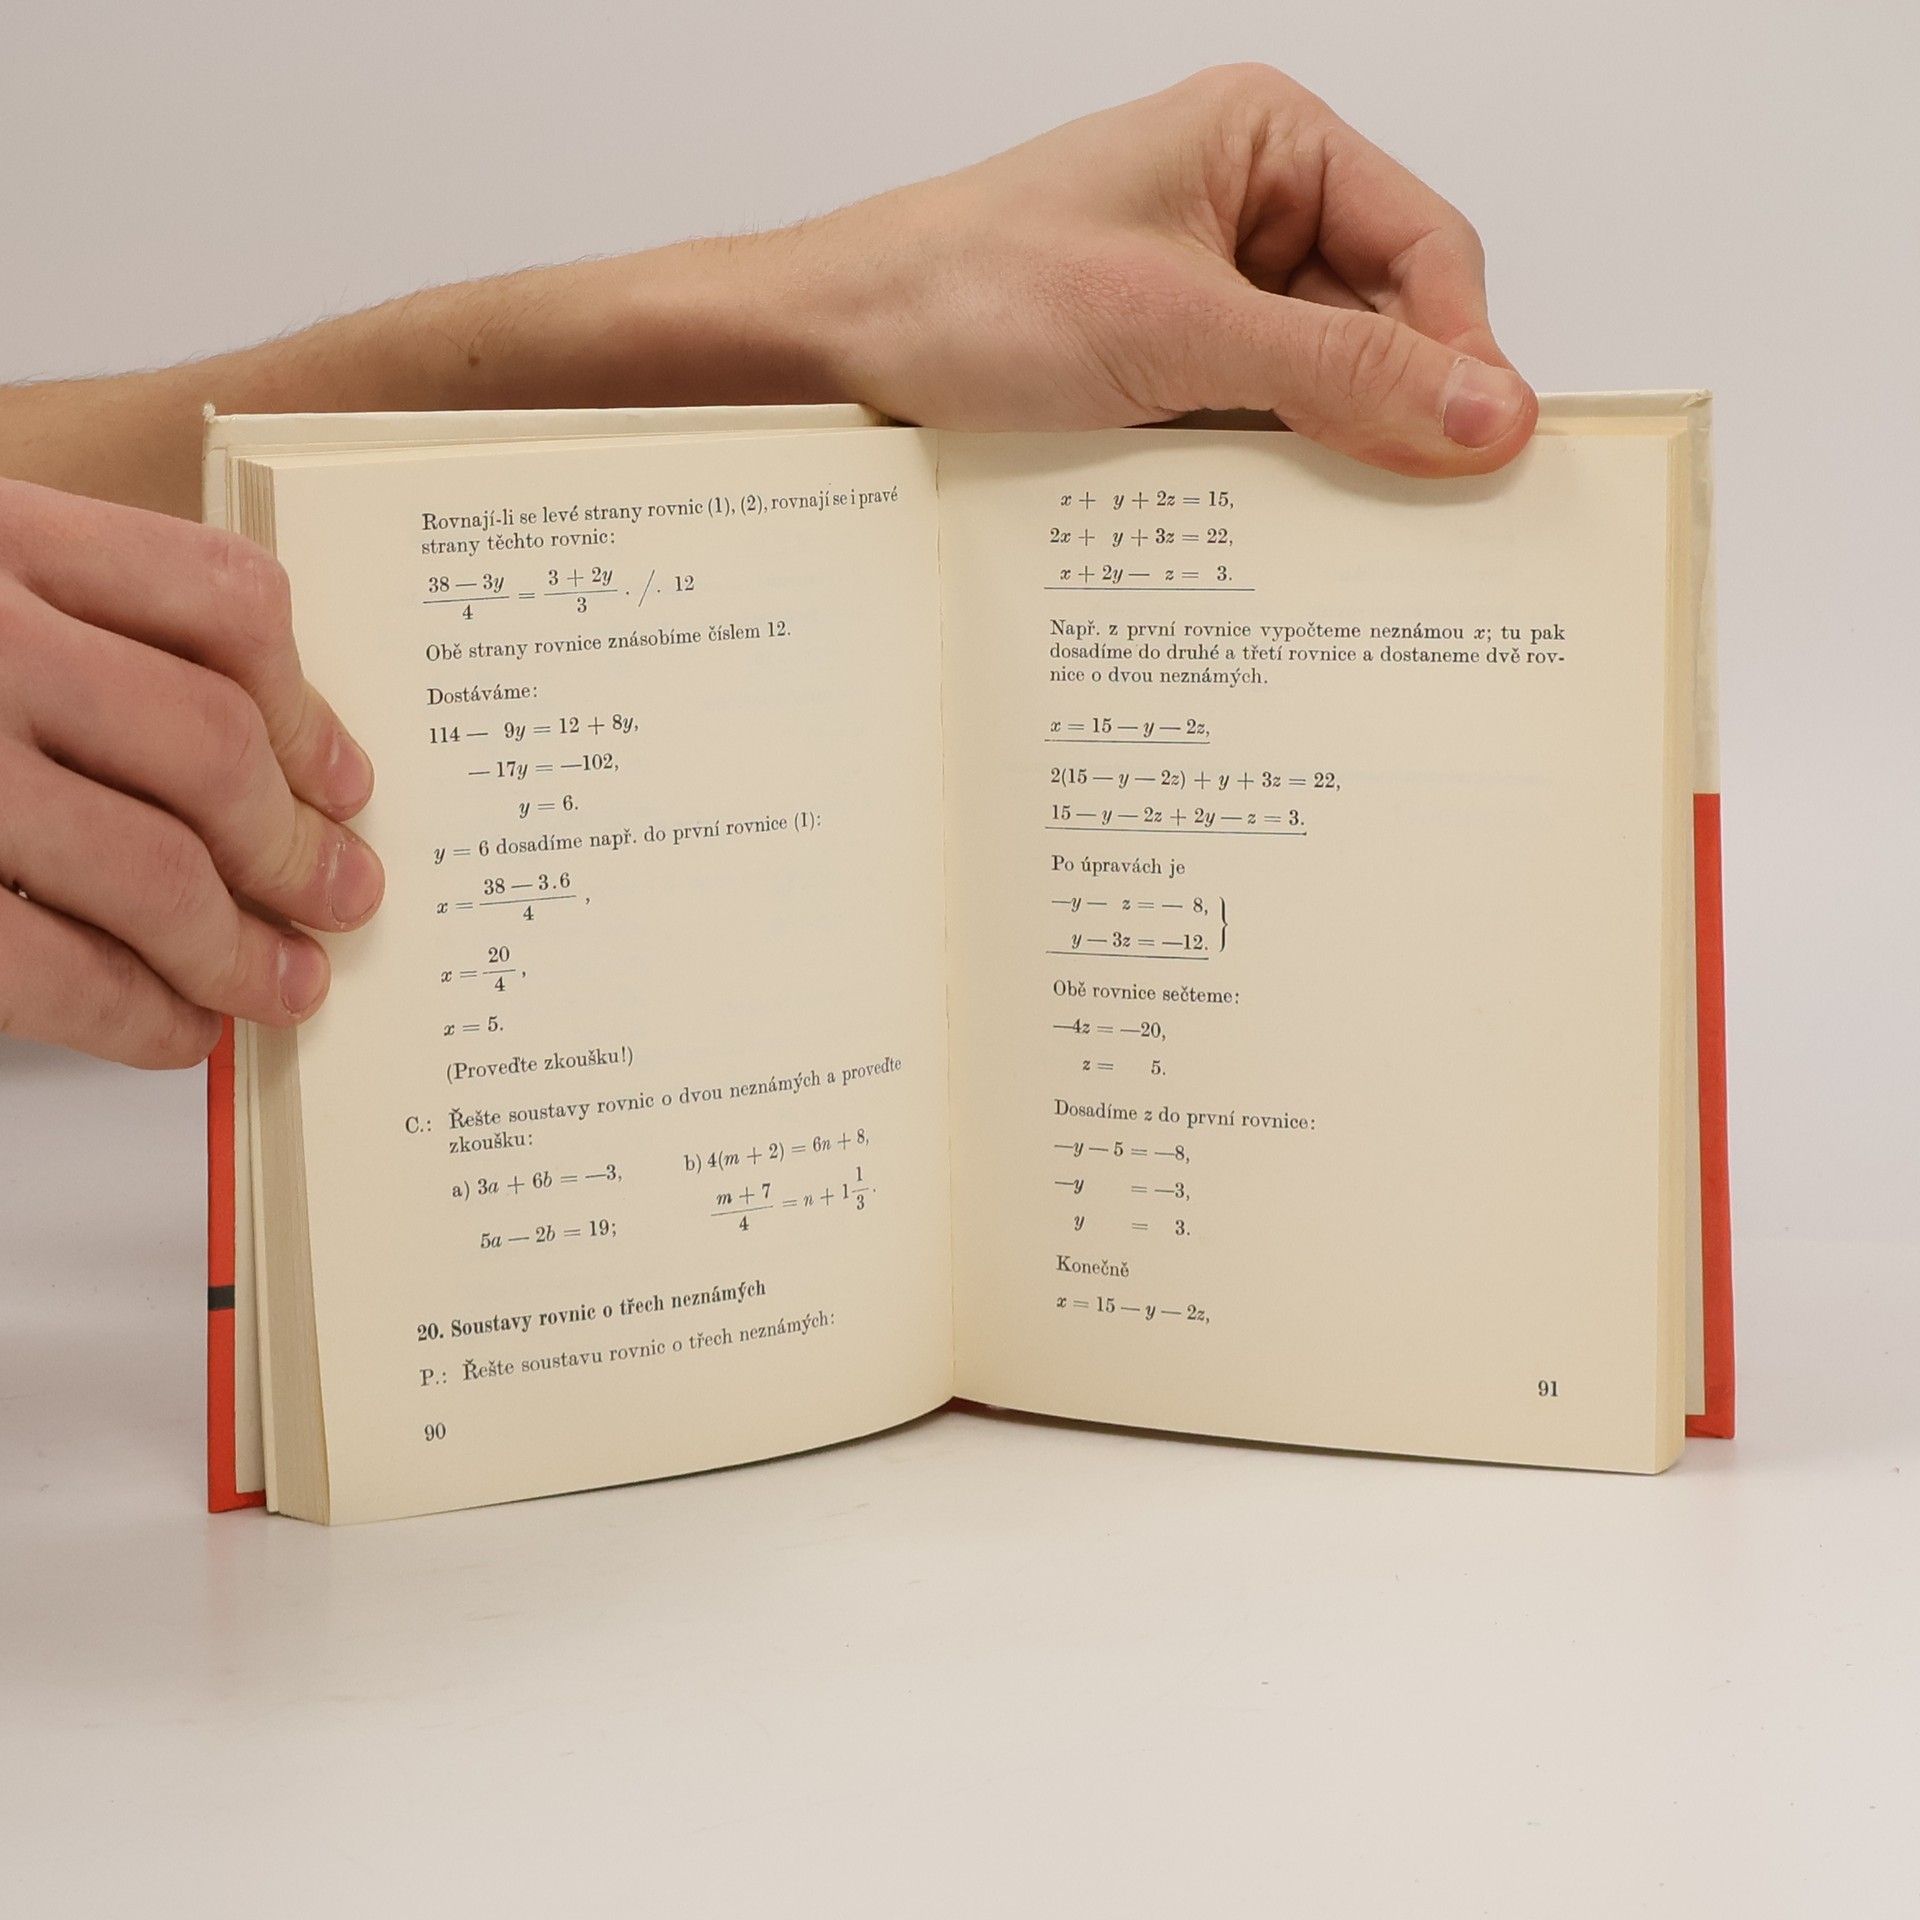 Rovnají-li se levé strany rovnic (1), (2), rovnají se i pravé
strany těchto rovnic:
38 — 3y / 4 = 3 + 2y / 3 . /. 12
Obě strany rovnice znásobíme číslem 12.
Dostáváme:
114 — 9y = 12 + 8y,
— 17y = —102,
y = 6.
y = 6 dosadíme např. do první rovnice (1):
x = 38 — 3.6 / 4 ,
x = 20 / 4 ,
x = 5.
(Proveďte zkoušku!)
C.: Řešte soustavy rovnic o dvou neznámých a proveďte
zkoušku:
a) 3a + 6b = —3, b) 4(m + 2) = 6n + 8,
5a — 2b = 19; m + 7 / 4 = n + 1 1/3.
20. Soustavy rovnic o třech neznámých
P.: Řešte soustavu rovnic o třech neznámých:
90
x + y + 2z = 15,
2x + y + 3z = 22,
x + 2y — z = 3.
Např. z první rovnice vypočteme neznámou x; tu pak
dosadíme do druhé a třetí rovnice a dostaneme dvě rov-
nice o dvou neznámých.
x = 15 — y — 2z,
2(15 — y — 2z) + y + 3z = 22,
15 — y — 2z + 2y — z = 3.
Po úpravách je
—y — z = — 8,
y — 3z = —12. }
Obě rovnice sečteme:
—4z = —20,
z = 5.
Dosadíme z do první rovnice:
—y — 5 = —8,
—y = —3,
y = 3.
Konečně
x = 15 — y — 2z,
91